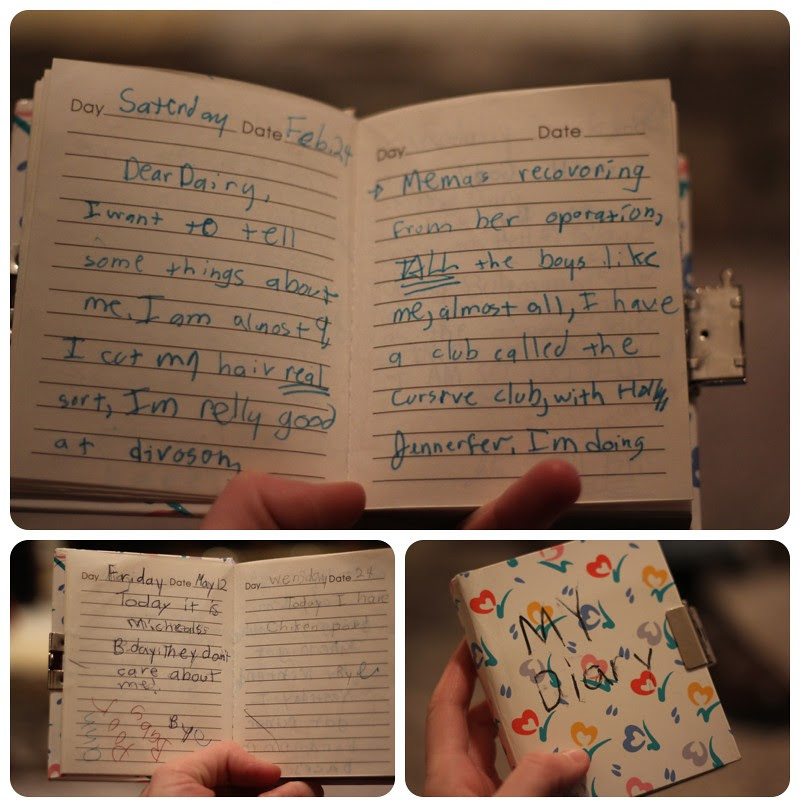 Day Saterday Date Feb.24
Dear Dairy,
I want to tell
some things about
me, I am almost 9,
I cut my hair real
sort, I'm relly good
at divoson,
Day Date
→ Mema's recovoring
from her oporation,
ALL the boys like
me, almost all, I have
a club called the
Cursive club, with Holly,
Jennerfer, I'm doing
Day Friday Date May 12
Today it is
B day, They don't
care about
me!
Bye
Day Date 24
Today I have
Bye
MY
Diary